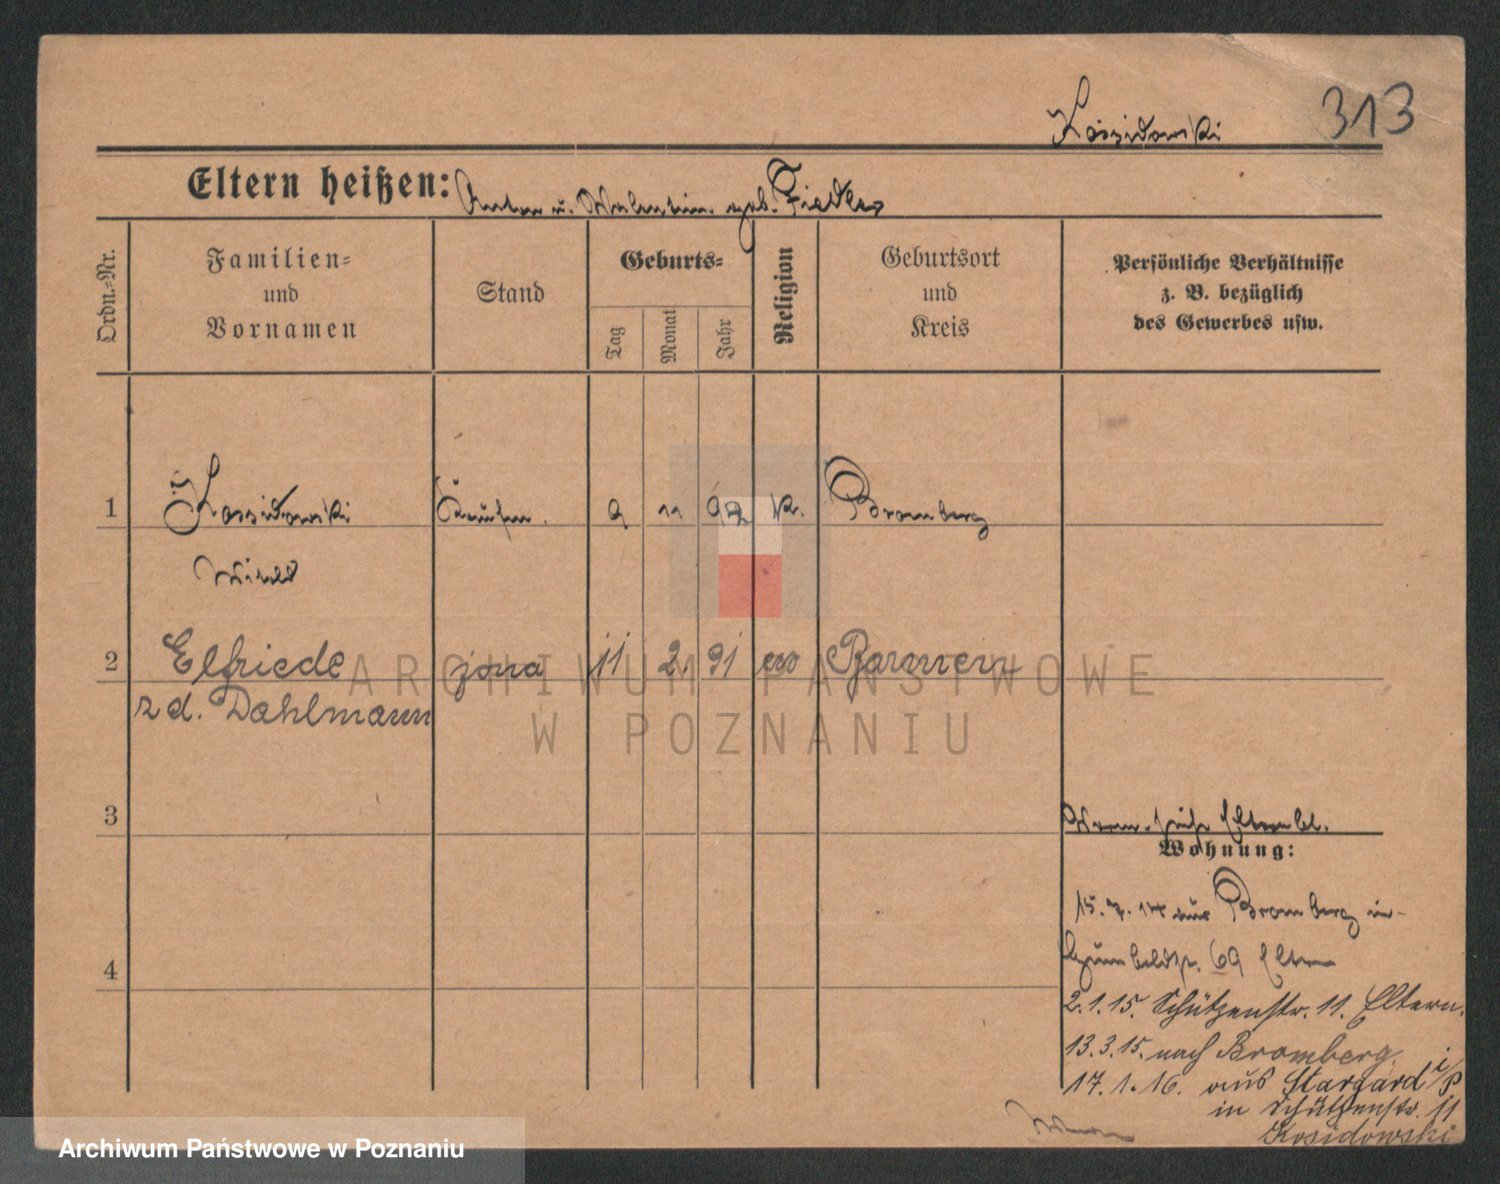 313
Kossidowski
Eltern heißen: Anton u. Valentine geb. Fiedler
Ordn.-Nr.
Familien-
und
Vornamen
Stand
Geburts-
Tag
Monat
Jahr
Religion
Geburtsort
und
Kreis
Persönliche Verhältnisse
z. B. bezüglich
des Gewerbes usw.
1 Kossidowski 9 11 92 k. Bromberg
2 Elfriede żona 11 2 91 ew Barmen
zd. Dahlmann
3
Wohnung:
15.7.14 aus Bromberg in
Humboldtstr. 69 Eltern
4
2.1.15. Schützenstr. 11. Eltern.
13.3.15. nach Bromberg.
17.1.16. aus Stargard i/P
in Schützenstr. 11
Kosidowski
ARCHIWUM PAŃSTWOWE
W POZNANIU
Archiwum Państwowe w Poznaniu